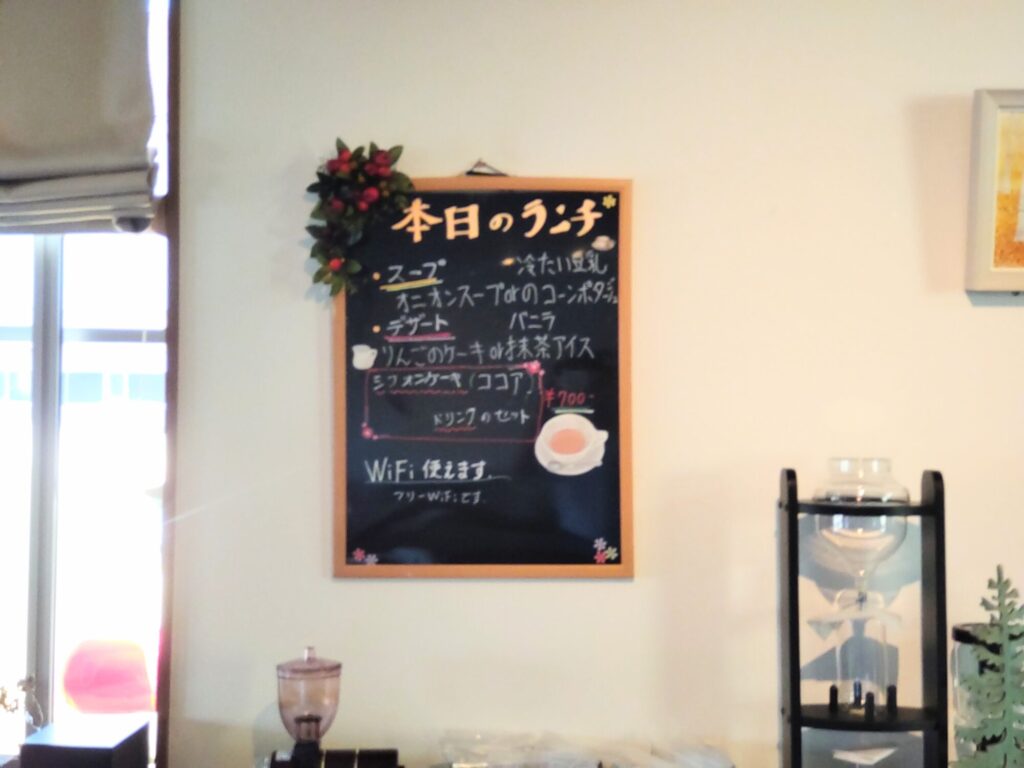 本日のランチ
・スープ 冷たい豆乳
オニオンスープorのコーンポタージュ
・デザート バニラ
りんごのケーキor抹茶アイス
シフォンケーキ(ココア)
¥700-
ドリンクのセット
WiFi 使えます。
フリーWiFiです。